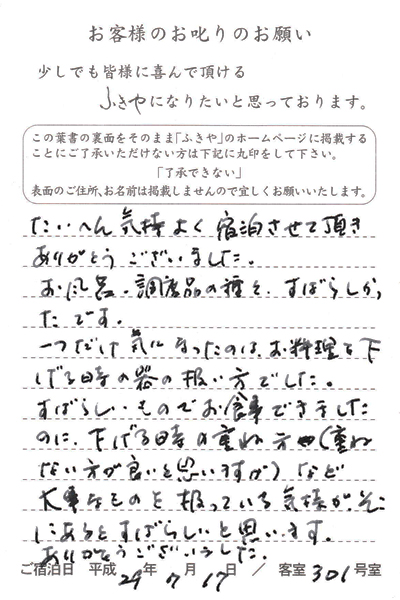 お客様のお叱りのお願い
少しでも皆様に喜んで頂ける
ふきやになりたいと思っております。
この葉書の裏面をそのまま「ふきや」のホームページに掲載する
ことにご了承いただけない方は下記に丸印をして下さい。
「了承できない」
表面のご住所、お名前は掲載しませんので宜しくお願いいたします。
たいへん気持よく宿泊させて頂き
ありがとうございました。
お風呂、調度品の種々、すばらしかっ
たです。
一つだけ気になったのは、お料理を下
げる時の器の扱い方でした。
すばらしいものでお食事できました
のに、下げる時の重ね方や(重ね
ない方が良いと思いますが)など
大事なものを扱っている気持が、そこ
にあるとすばらしいと思います。
ありがとうございました。
ご宿泊日 平成29年7月17日 / 客室301号室